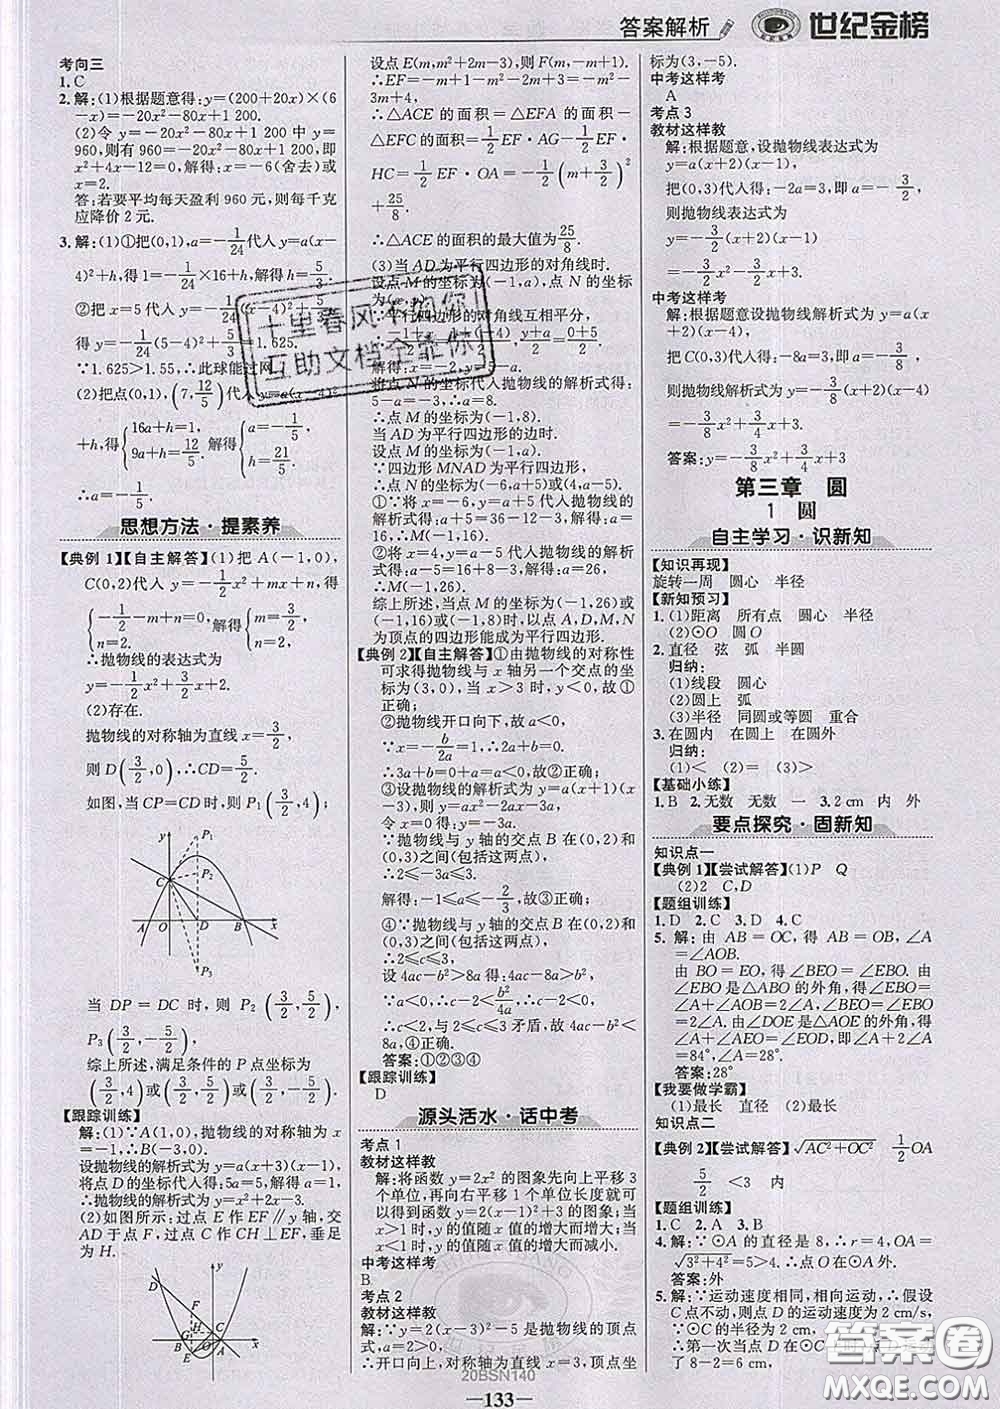 答案解析
世纪金榜
考向三
1. C
2. 解:(1)根据题意得:y=(200+20x)×(6
-x)=-20x²-80x+1 200.
(2)令 y=-20x²-80x+1 200 中 y=
960,则有 960=-20x²-80x+1 200,即
x²+4x-12=0,解得:x=-6(舍去)或
x=2.
答:若要平均每天盈利 960 元,则每千克
应降价 2 元.
3. 解:(1)①把(0,1),a=-1/24代入y=a(x-
4)²+h,得 1=-1/24×16+h,解得 h=5/3.
②把 x=5 代入 y=-1/24(x-4)²+5/3,
得 y=-1/24(5-4)²+5/3=1.625,
∵1.625>1.55,∴此球能过网.
(2)把点(0,1),(7,12/5)代入 y=a(x-4)²
+h,得{16a+h=1, 9a+h=12/5. 解得{a=-1/5, h=21/5.
∴a=-1/5.
思想方法·提素养
【典例 1】【自主解答】(1)把 A(-1,0),
C(0,2)代入 y=-1/2x²+mx+n,得
{-1/2-m+n=0, n=2. 解得{m=3/2, n=2.
∴抛物线的表达式为
y=-1/2x²+3/2x+2.
(2)存在.
抛物线的对称轴为直线 x=3/2,
则 D(3/2,0),∴CD=5/2.
如图,当 CP=CD 时,则 P₁(3/2,4);
y P₁
P₂
C
A O D B x
P₃
当 DP=DC 时,则 P₂(3/2,5/2),
P₃(3/2,-5/2).
综上所述,满足条件的 P 点坐标为
(3/2,4)或(3/2,5/2)或(3/2,-5/2).
【跟踪训练】
解:(1)∵A(1,0),抛物线的对称轴为 x
=-1,∴B(-3,0).
设抛物线的解析式为 y=a(x+3)(x-1),
将点 D 的坐标代入得:5a=5,解得 a=1,
∴抛物线的解析式为 y=x²+2x-3.
(2)如图所示:过点 E 作 EF∥y 轴,交
AD 于点 F,过点 C 作 CH⊥EF,垂足
为 H.
设点 E(m,m²+2m-3),则 F(m,-m+1).
∴EF=-m+1-m²-2m+3=-m²-
3m+4,
∴△ACE 的面积=△EFA 的面积-
△EFC的面积=1/2EF·AG-1/2EF·
HC=1/2EF·OA=-1/2(m+3/2)²
+25/8.
∴△ACE 的面积的最大值为25/8.
(3)当 AD 为平行四边形的对角线时.
设点 M 的坐标为(-1,a),点 N 的坐标
为(x,y).
∴平行四边形的对角线互相平分,
解得:x=-2,y=5-a.
将点 N 的坐标代入抛物线的解析式得:
5-a=-3,∴a=8.
∴点 M 的坐标为(-1,8).
当 AD 为平行四边形的边时.
设点 M 的坐标为(-1,a).
∵四边形 MNAD 为平行四边形,
∴点 N的坐标为(-6,a+5)或(4,a-5).
①将 x=-6,y=a+5 代入抛物线的解
析式得:a+5=36-12-3,解得:a=16,
∴M(-1,16).
②将 x=4,y=a-5 代入抛物线的解析
式得:a-5=16+8-3,解得:a=26,
∴M(-1,26).
综上所述,当点 M 的坐标为(-1,26)或
(-1,16)或(-1,8)时,以点 A,D,M,N
为顶点的四边形能成为平行四边形.
【典例 2】【自主解答】①由抛物线的对称性
可求得抛物线与 x 轴另一个交点的坐
标为(3,0),当 x>3 时,y<0,故①
正确;
②抛物线开口向下,故 a<0,
∵x=-b/2a=1,∴2a+b=0.
∴3a+b=0+a=a<0,故②正确;
③设抛物线的解析式为 y=a(x+1)(x
-3),则 y=ax²-2ax-3a,
令 x=0 得:y=-3a.
∵抛物线与 y 轴的交点 B 在(0,2)和
(0,3)之间(包括这两点),
∴2≤-3a≤3.
解得:-1≤a≤-2/3,故③正确;
④∵抛物线与y轴的交点B在(0,2)和
(0,3)之间(包括这两点),
∴2≤c≤3,
设 4ac-b²>8a得 4ac-8a>b²,
∵a<0,∴c-2<b²/4a
∴c-2<0,
∴c<2,与 2≤c≤3 矛盾,故 4ac-b²<
8a,④正确.
答案:①②③④
【跟踪训练】
D
源头活水·话中考
考点 1
教材这样教
解:将函数 y=2x² 的图象先向上平移3
个单位,再向右平移 1 个单位长度就可
以得到函数 y=2(x-1)²+3 的图象;当
x>1 时,y 的值随 x 值的增大而增大;当
x<1 时,y 的值随 x 值的增大而减小.
中考这样考
B
考点 2
教材这样教
解:∵y=2(x-3)²-5 是抛物线的顶点
式,a=2>0,
∴开口向上,对称轴为直线 x=3,顶点坐
标为(3,-5).
中考这样考
A
考点 3
教材这样教
解:根据题意,设抛物线表达式为
y=a(x+2)(x-1)
把(0,3)代入得:-2a=3,即 a=-3/2,
则抛物线表达式为
y=-3/2(x+2)(x-1)
=-3/2x²-3/2x+3.
中考这样考
解:根据题意设抛物线解析式为 y=a(x
+2)(x-4)
把 C(0,3)代入得:-8a=3,即 a=-3/8,
则抛物线解析式为 y=-3/8(x+2)(x-4)=
-3/8x²+3/4x+3.
答案:y=-3/8x²+3/4x+3
第三章 圆
1 圆
自主学习·识新知
【知识再现】
旋转一周 圆心 半径
【新知预习】
1. (1)距离 所有点 圆心 半径
(2)⊙O 圆O
2. 直径 弦 弧 半圆
归纳:
(1)线段 圆心
(2)圆上 弧
(3)半径 同圆或等圆 重合
3. 在圆内 在圆上 在圆外
归纳:
(1)< (2)= (3)>
【基础小练】
1. B 2. 无数 无数 一 3. 2 cm 内 外
要点探究·固新知
知识点一
【典例 1】【尝试解答】(1)P Q
(2)2 C,D
【题组训练】
1. D 2. C 3. D 4. C
5. 解:由 AB=OC,得 AB=OB,∠A
=∠AOB.
由 BO=EO,得∠BEO=∠EBO.
由∠EBO 是△ABO 的外角,得∠EBO=
∠A+∠AOB=2∠A,∠BEO=∠EBO
=2∠A.由∠DOE是△AOE的外角,得
∠A+∠AEO=∠EOD,即∠A+2∠A=
84°,∠A=28°.
答案:28°
【我要做学霸】
(1)最长 直径 (2)最长
知识点二
【典例 2】【尝试解答】√AC²+OC² 1/2OA
5/2 <3 内
【题组训练】
1. C 2. A 3. B
4. 解:∵⊙A 的直径是 8,∴r=4,OA=
√3²+4²=5>4.∴点 O 在⊙A 外.
答案:外
5. 解:∵运动速度相同,相向运动,∴假设
C 点不动,则点 D 的运动速度为 2 cm/s,
第一次当点 D 在⊙C
了 8-2=6(cm),
20BSN140
—133—
十里春风不如你
互助文档全靠你
答案卷
MXQE.COM